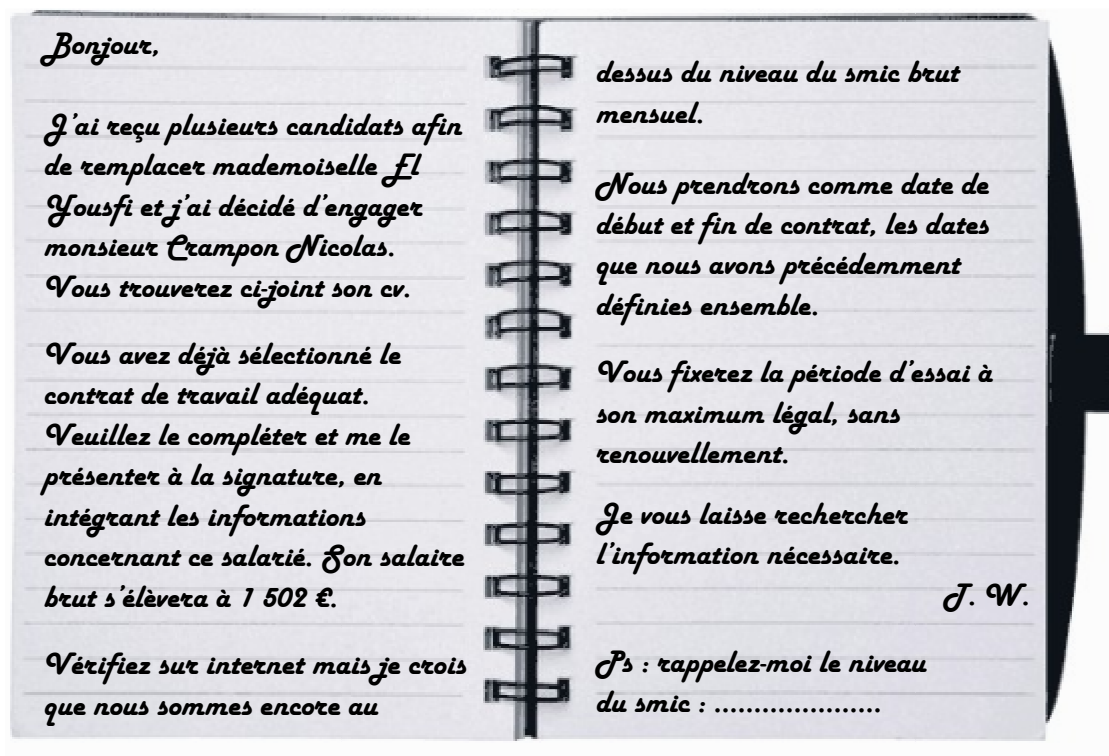 Bonjour,
J'ai reçu plusieurs candidats afin
de remplacer mademoiselle El
Yousfi et j'ai décidé d'engager
monsieur Crampon Nicolas.
Vous trouverez ci-joint son cv.
Vous avez déjà sélectionné le
contrat de travail adéquat.
Veuillez le compléter et me le
présenter à la signature, en
intégrant les informations
concernant ce salarié. Son salaire
brut s'élèvera à 1 502 €.
Vérifiez sur internet mais je crois
que nous sommes encore au
dessus du niveau du smic brut
mensuel.
Nous prendrons comme date de
début et fin de contrat, les dates
que nous avons précédemment
définies ensemble.
Vous fixerez la période d'essai à
son maximum légal, sans
renouvellement.
Je vous laisse rechercher
l'information nécessaire.
T. W.
Ps : rappelez-moi le niveau
du smic : .....................